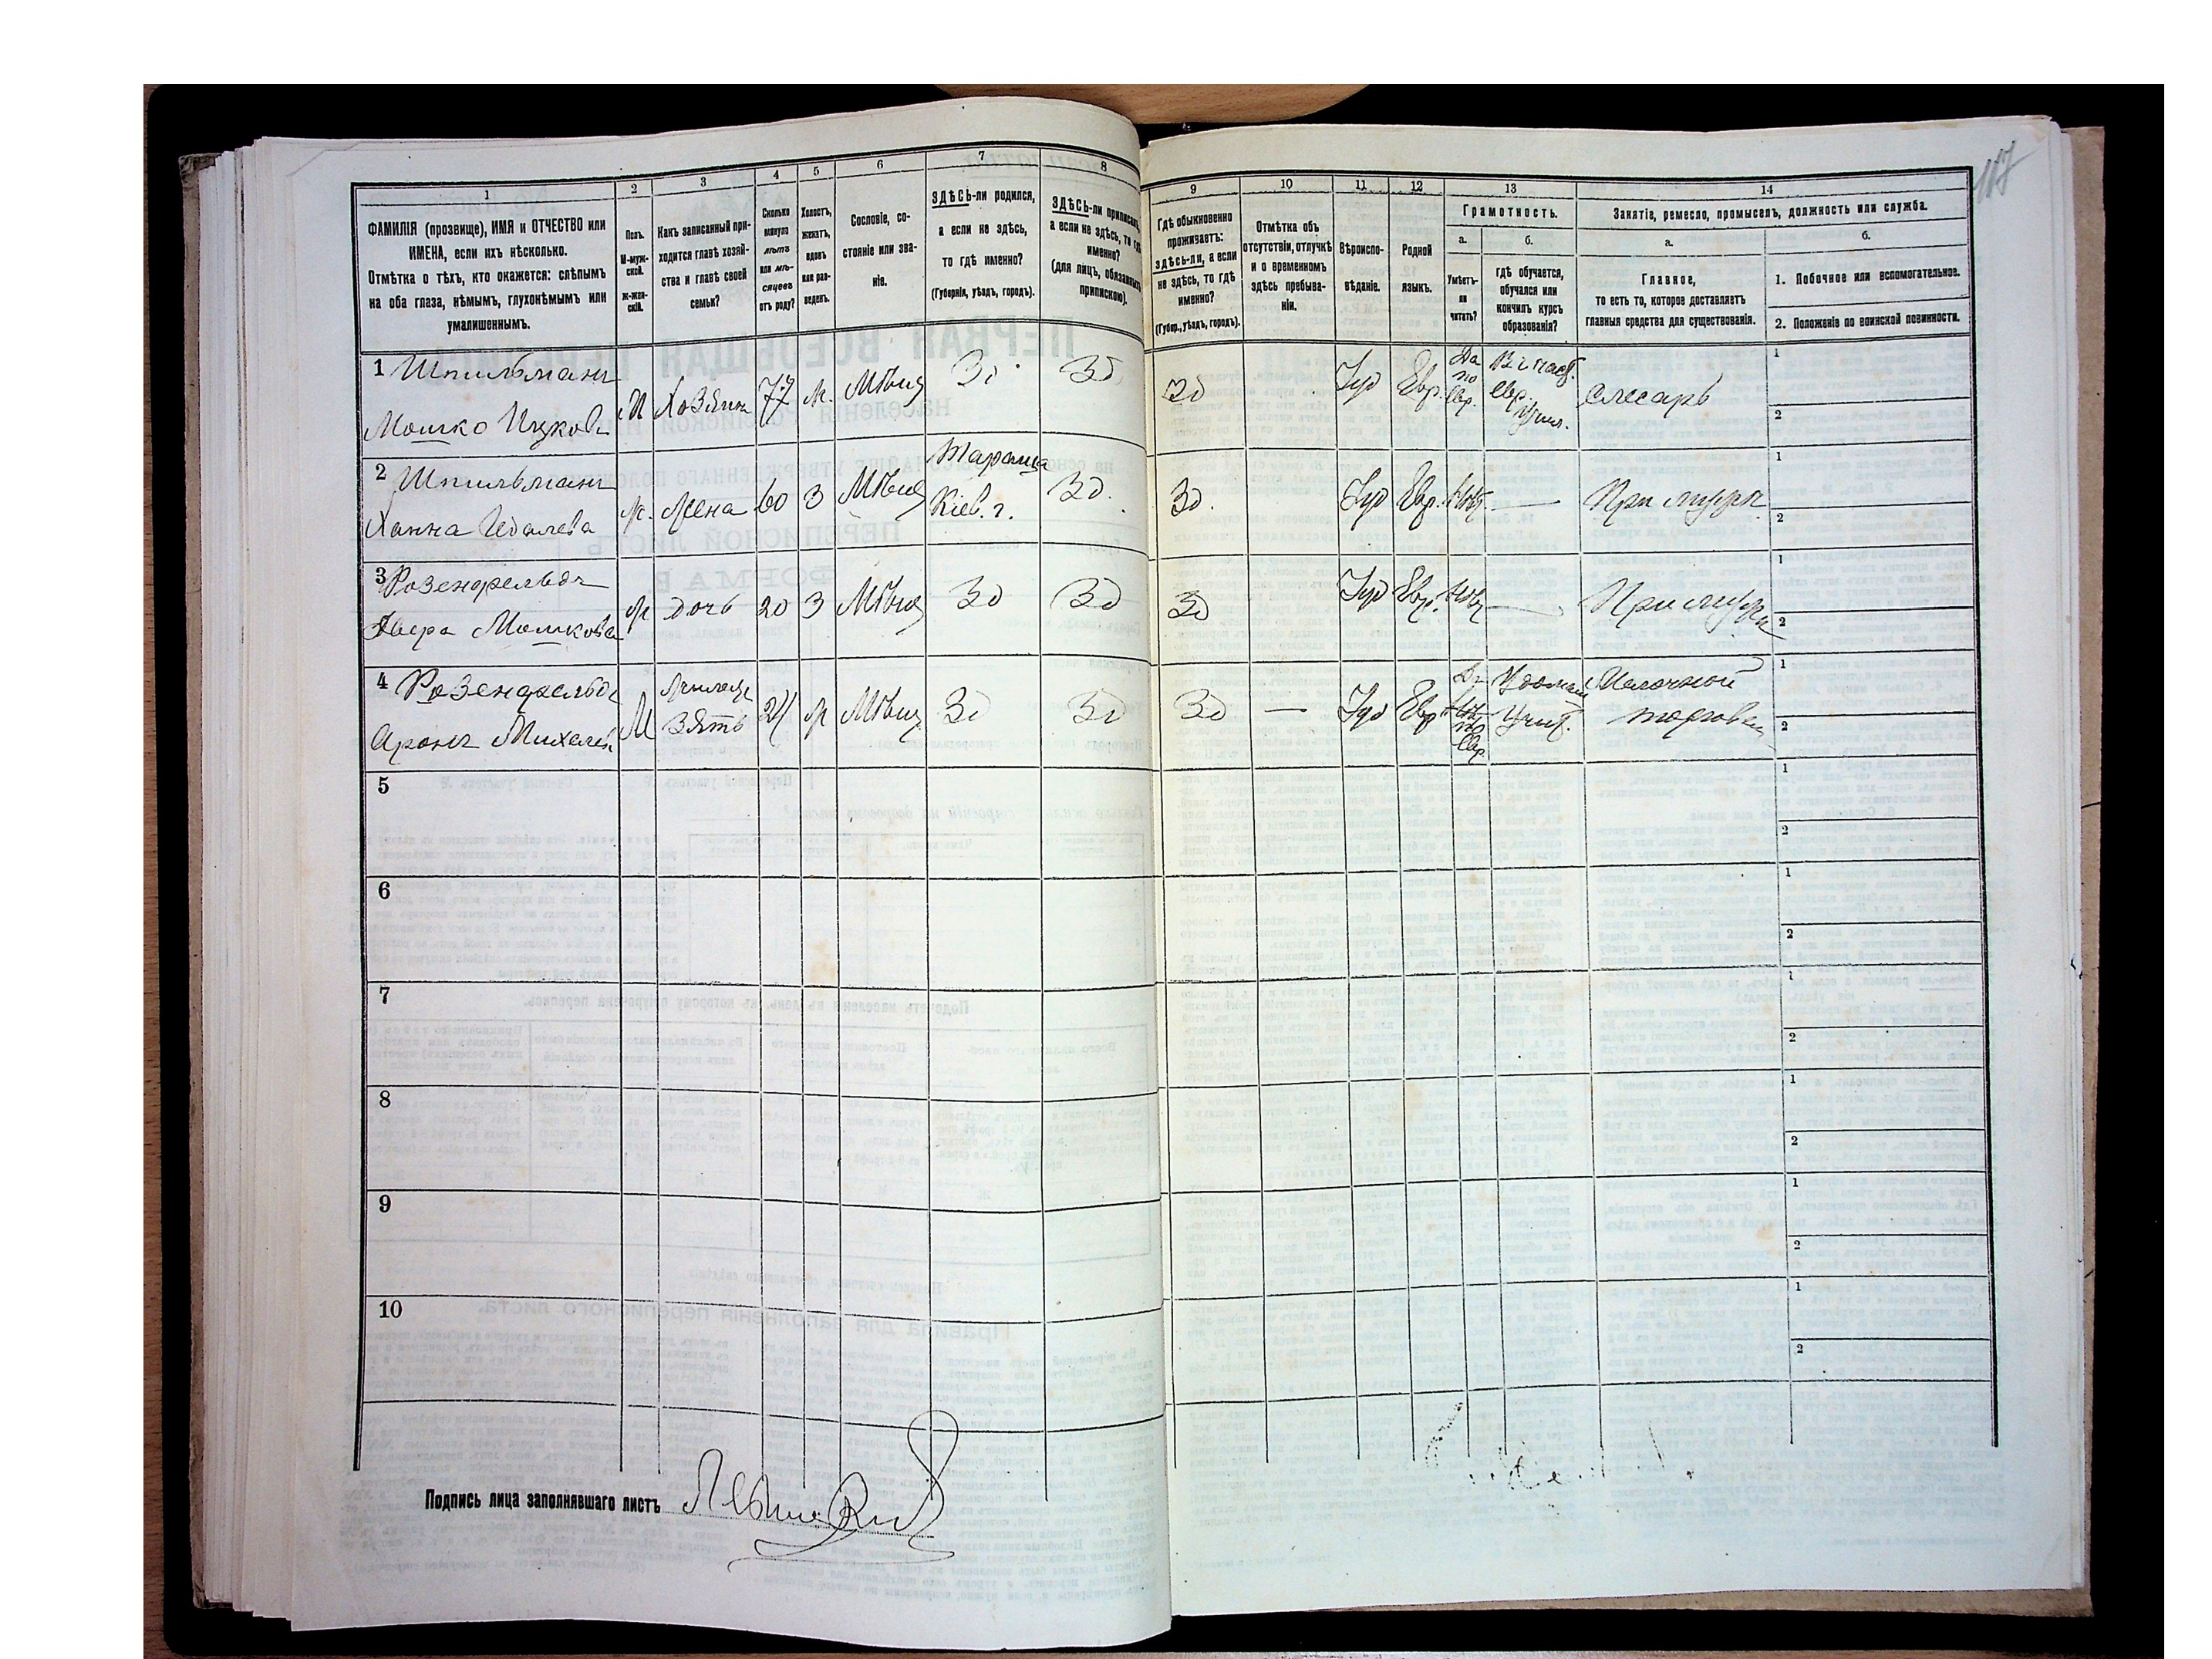 117
1
2
3
4
5
6
7
8
ФАМИЛІЯ (прозвище), ИМЯ и ОТЧЕСТВО или
ИМЕНА, если ихъ нѣсколько.
Отмѣтка о тѣхъ, кто окажется: слѣпымъ
на оба глаза, нѣмымъ, глухонѣмымъ или
умалишеннымъ.
Полъ.
М-муж-
ской.
Ж-жен-
скій.
Какъ записанный при-
ходится главѣ хозяй-
ства и главѣ своей
семьи?
Сколько
минуло
лѣтъ
или мѣ-
сяцевъ
отъ роду?
Холостъ,
женатъ,
вдовъ
или раз-
веденъ.
Сословіе, со-
стояніе или зва-
ніе.
ЗДѢСЬ-ли родился,
а если не здѣсь,
то гдѣ именно?
(Губернія, уѣздъ, городъ).
ЗДѢСЬ-ли приписанъ,
а если не здѣсь, то гдѣ
именно?
(для лицъ, обязанныхъ
припискою).
9
10
11
12
13
14
Гдѣ обыкновенно
проживаетъ:
здѣсь-ли, а если
не здѣсь, то гдѣ
именно?
(Губер., уѣздъ, городъ).
Отмѣтка объ
отсутствіи, отлучкѣ
и о временномъ
здѣсь пребыва-
ніи.
Вѣроиспо-
вѣданіе.
Родной
языкъ.
Грамотность.
а.
б.
Умѣетъ-
ли
читать?
гдѣ обучается,
обучался или
кончилъ курсъ
образованія?
Занятіе, ремесло, промыселъ, должность или служба.
а.
б.
Главное,
то есть то, которое доставляетъ
главныя средства для существованія.
1. Побочное или вспомогательное.
2. Положеніе по воинской повинности.
1 Шпильманъ
Мошко Ицковъ
М
Хозяинъ
77
ж.
Мѣщ
Зд
Зд
Зд
Іуд
Евр.
Да
по
Евр.
Евр.
слесарь
1
2
2 Шпильманъ
Ханна
ж.
Жена
60
З
Мѣщ
Тараща
Кіев. г.
Зд.
Зд.
Іуд
Евр.
Нѣт
—
При мужѣ
1
2
3 Розенфельдъ
Двера Мошкова
ж
дочь
20
З
Мѣщ
Зд
Зд
Зд
Іуд
Евр.
Нѣт
—
При мужѣ
1
2
4 Розенфельдъ
Аронъ
М
зять
24
ж
Мѣщ
Зд
Зд
Зд
—
Іуд
Евр
Да
по
Евр
Учит.
Мелочной
торговец
1
2
5
1
2
6
1
2
7
1
2
8
1
2
9
1
2
10
1
2
Подпись лица заполнявшаго листъ